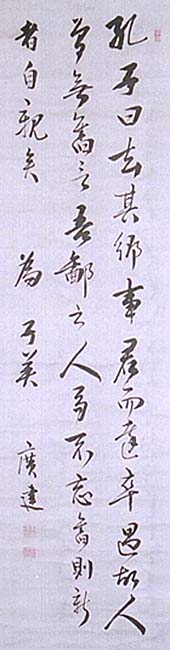 孔子曰去其鄉事君而達卒遇故人
曾無舊言吾鄙之人不忘舊則新
者自親矣 為
廣建